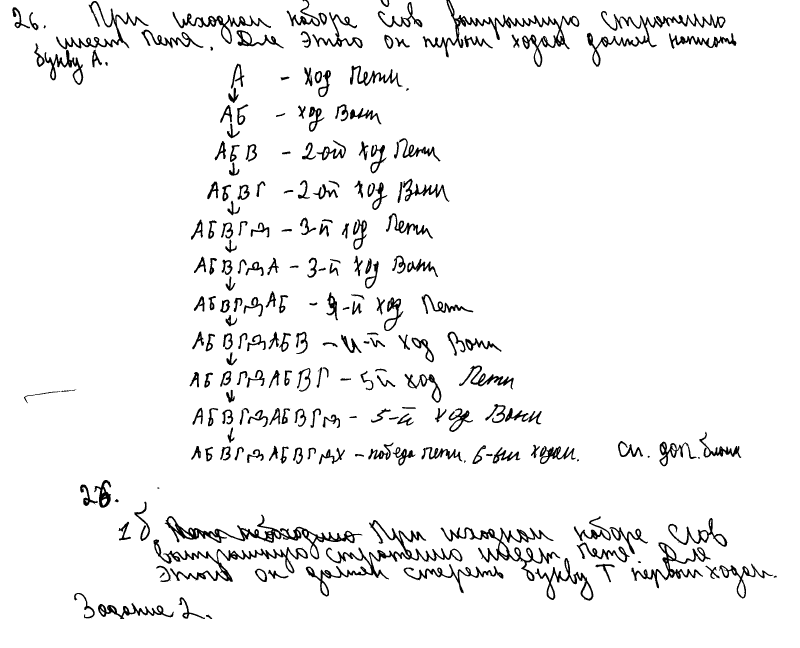 26. При исходном наборе слов выигрышную стратегию
имеет Петя. Для этого он первым ходом должен написать
букву А.
А - ход Пети.
АБ - ход Вани
АБВ - 2-ой ход Пети
АБВГ - 2-ой ход Вани
АБВГД - 3-й ход Пети
АБВГДА - 3-й ход Вани
АБВГДАБ - 4-й ход Пети
АБВГДАБВ - 4-й ход Вани
АБВГДАБВГ - 5й ход Пети
АБВГДАБВГД - 5-й ход Вани
АБВГДАБВГДХ - победа Пети 6-ым ходом. см. доп. бланк
26.
1б. При исходном наборе слов
выигрышную стратегию имеет Петя. Для
этого он должен стереть букву Т первым ходом.
Задание 2.